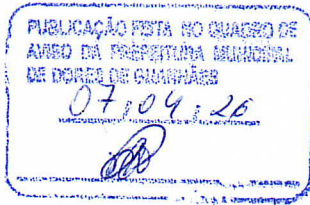 PUBLICAÇÃO FEITA NO QUADRO DE
AVISO DA PREFEITURA MUNICIPAL
DE DORES DE GUANHÃES
07, 04, 26